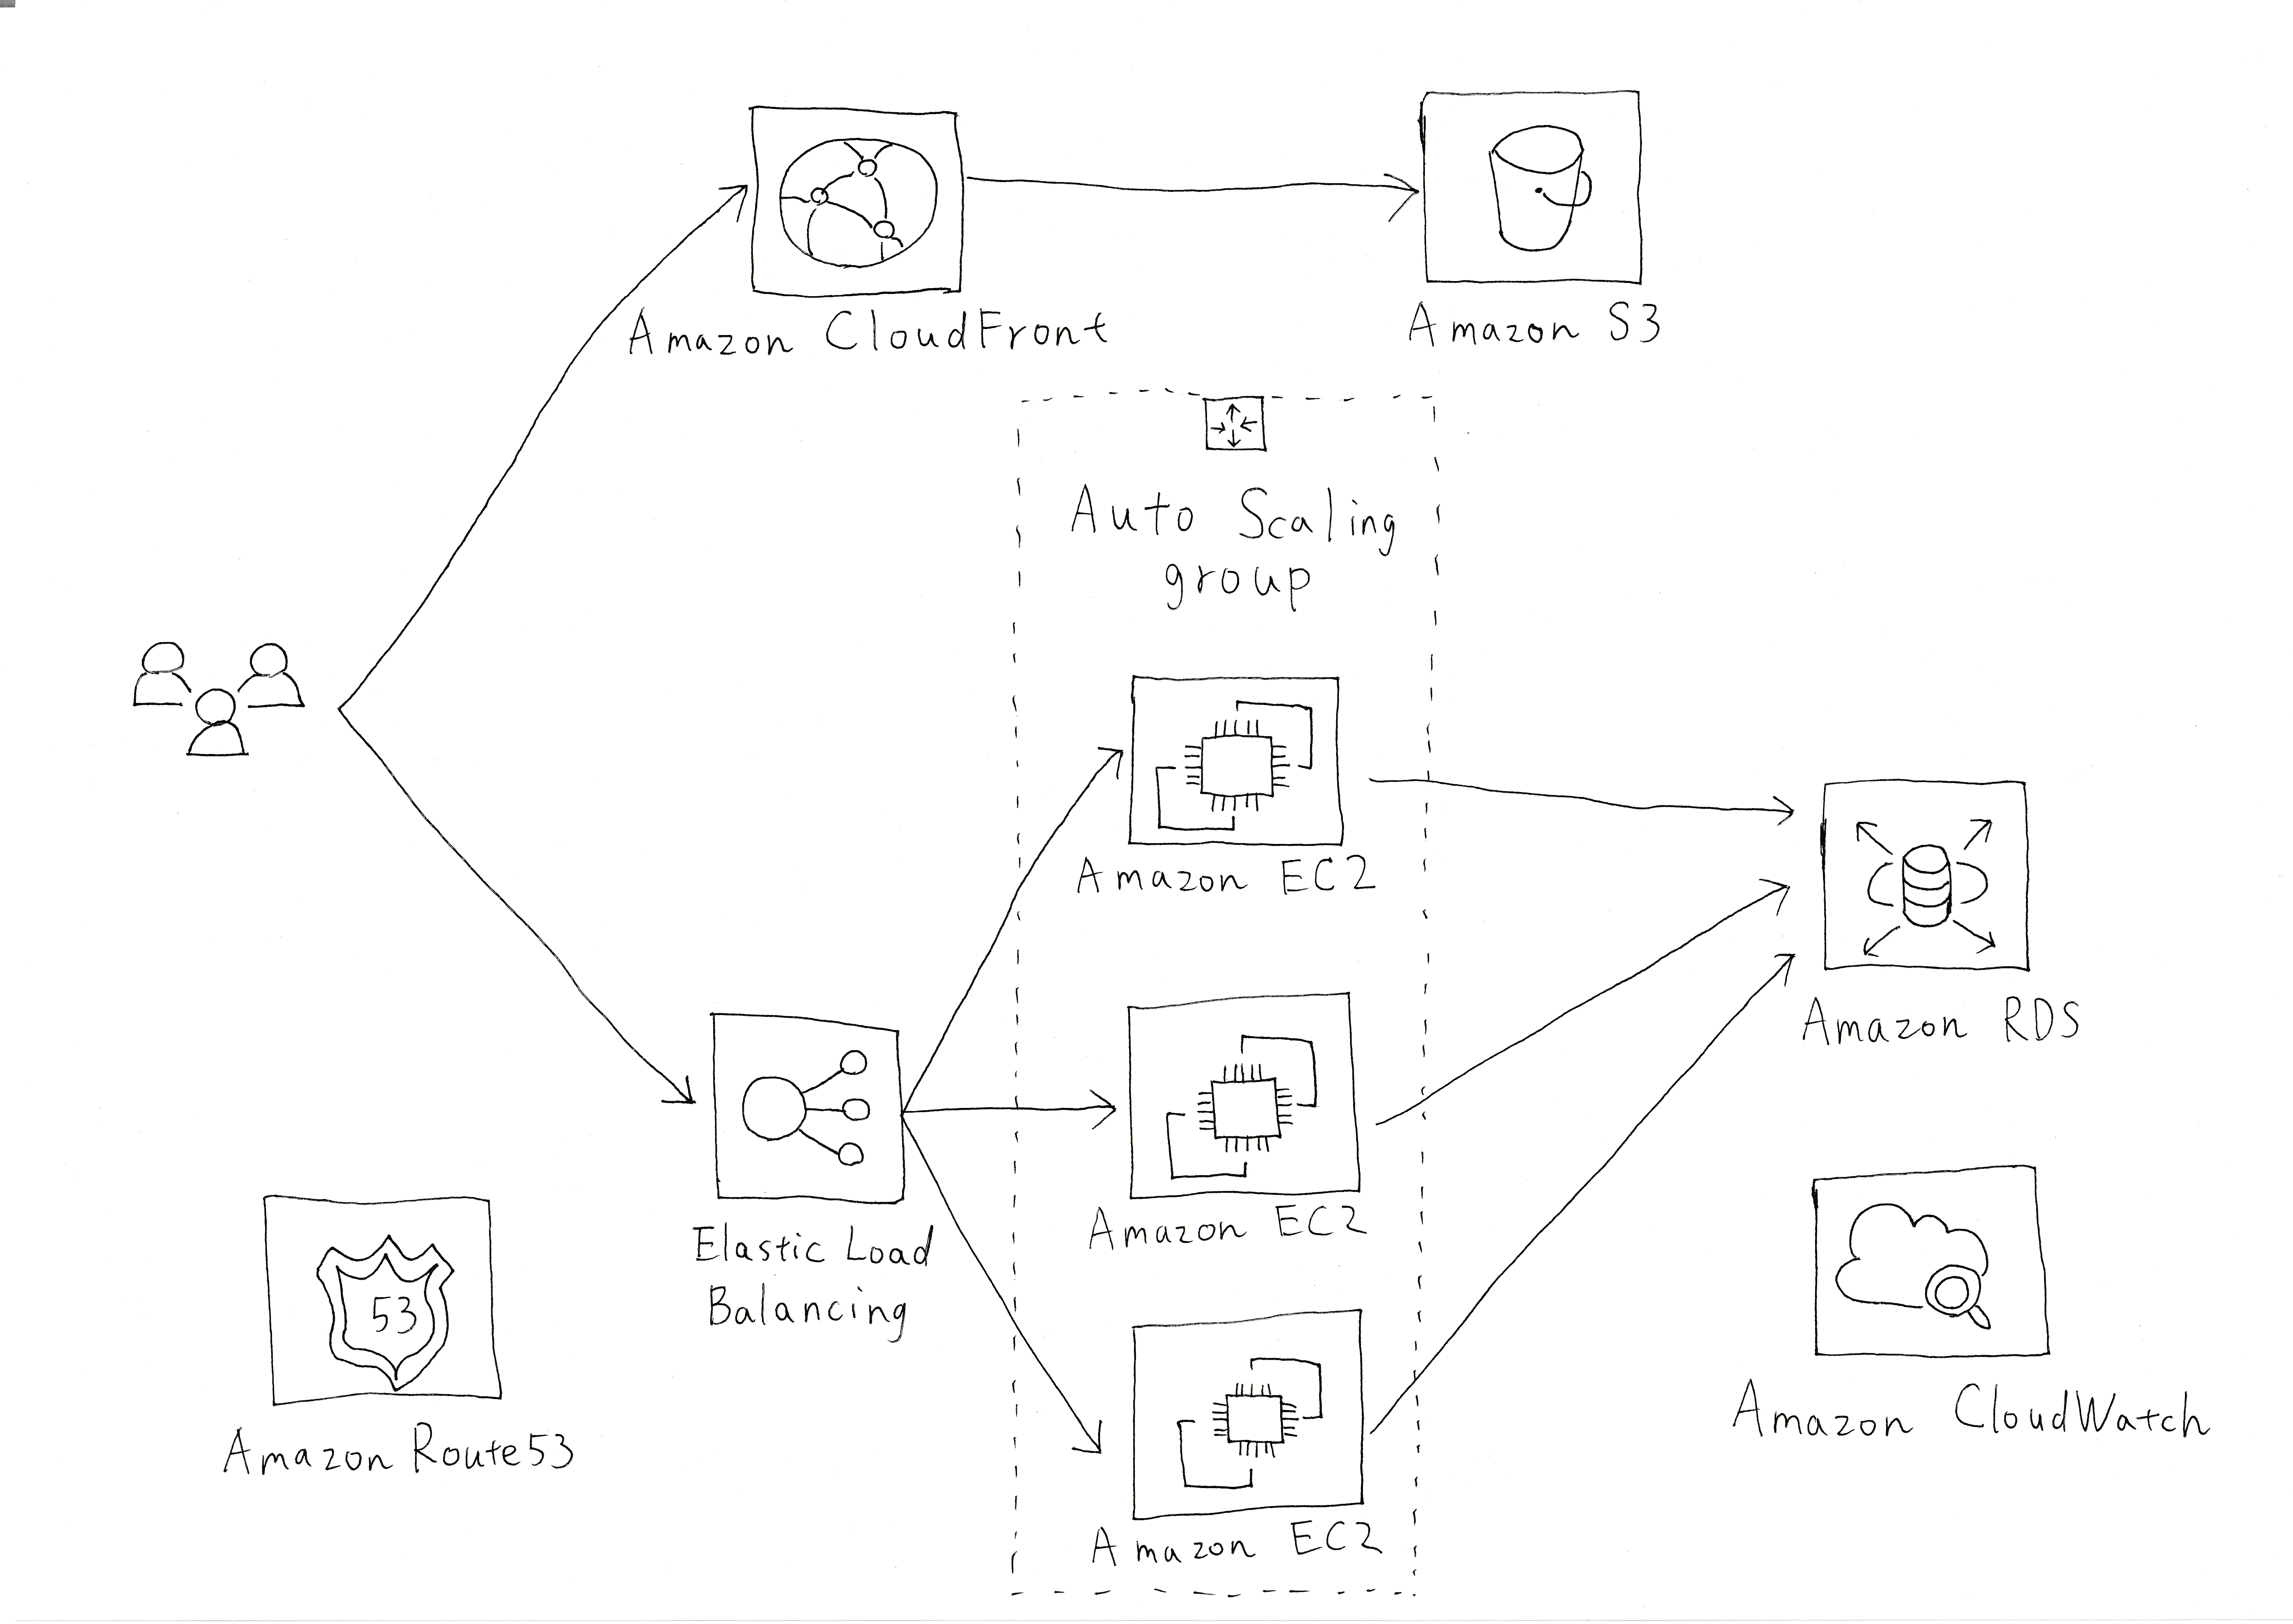 Amazon CloudFront
Amazon S3
Auto Scaling
group
Amazon EC2
Amazon RDS
Amazon EC2
Elastic Load
Balancing
53
Amazon Route53
Amazon CloudWatch
Amazon EC2